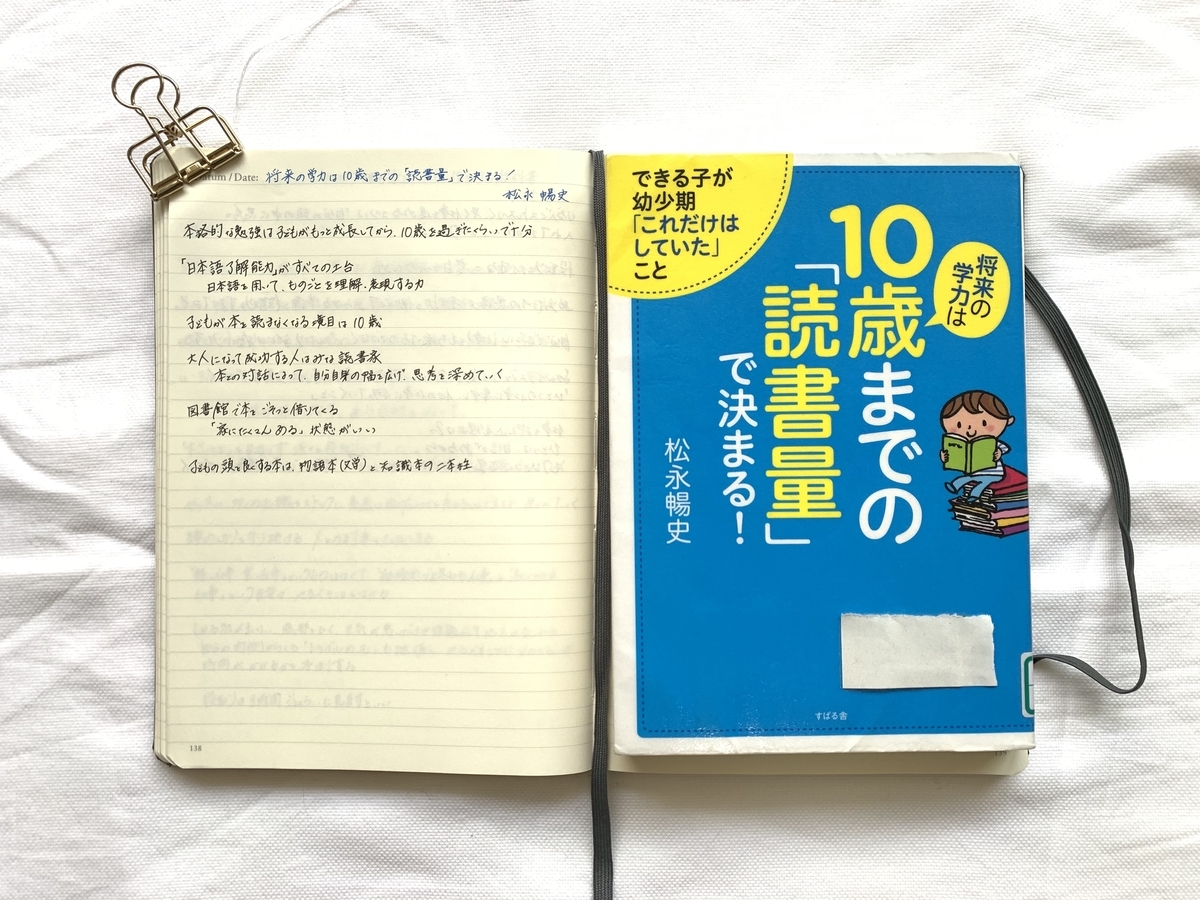 Datum/Date: 将来の学力は10歳までの「読書量」で決まる!
松永暢史
本格的な勉強は子どもがもっと成長してから、10歳を過ぎたくらいで十分
「日本語了解能力」がすべての土台
日本語を用いて、ものごとを理解、表現する力
子どもが本を読まなくなる境目は10歳
大人になって成功する人はみな読書家
本との対話によって、自分自身の幅を広げ、思考を深めていく
図書館で本をごそっと借りてくる
「家にたくさんある」状態がいい
子どもの頭を良くする本は、物語本(文学)と知識本の二本柱
138
できる子が
幼少期
「これだけは
していた」
こと
将来の
学力は
10歳までの
「読書量」
で決まる!
松永暢史
すばる舎